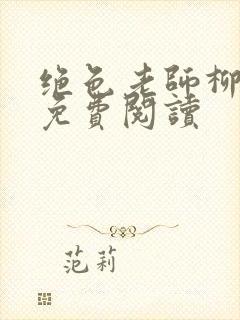 绝色老师柳
免費閱讀
范莉